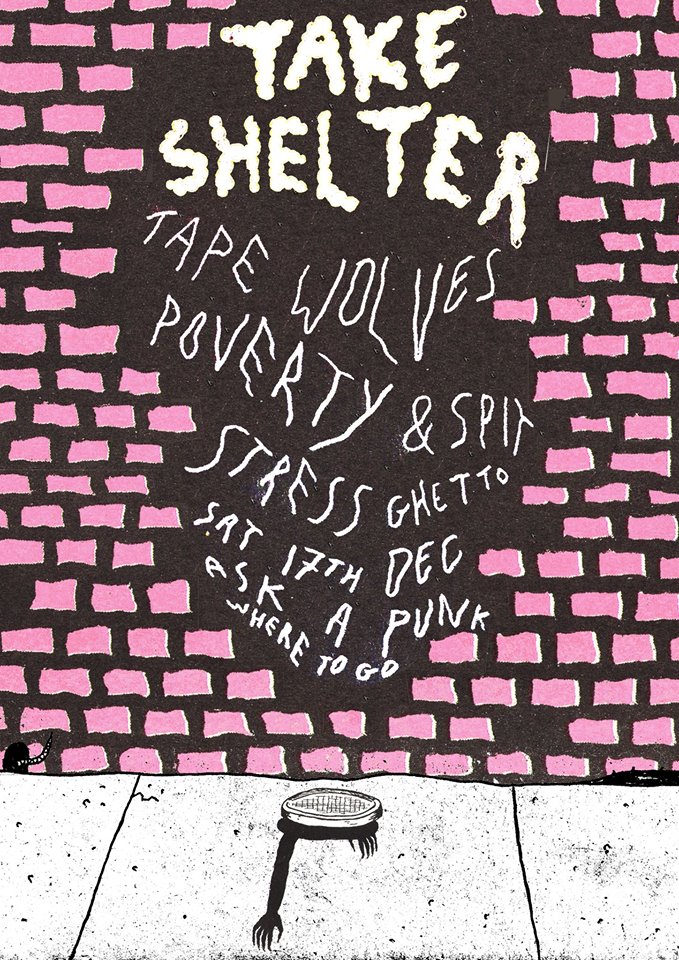 TAKE
SHELTER
TAPE WOLVES
POVERTY & SPIT
STRESS GHETTO
SAT 17TH DEC
ASK A PUNK
WHERE TO GO